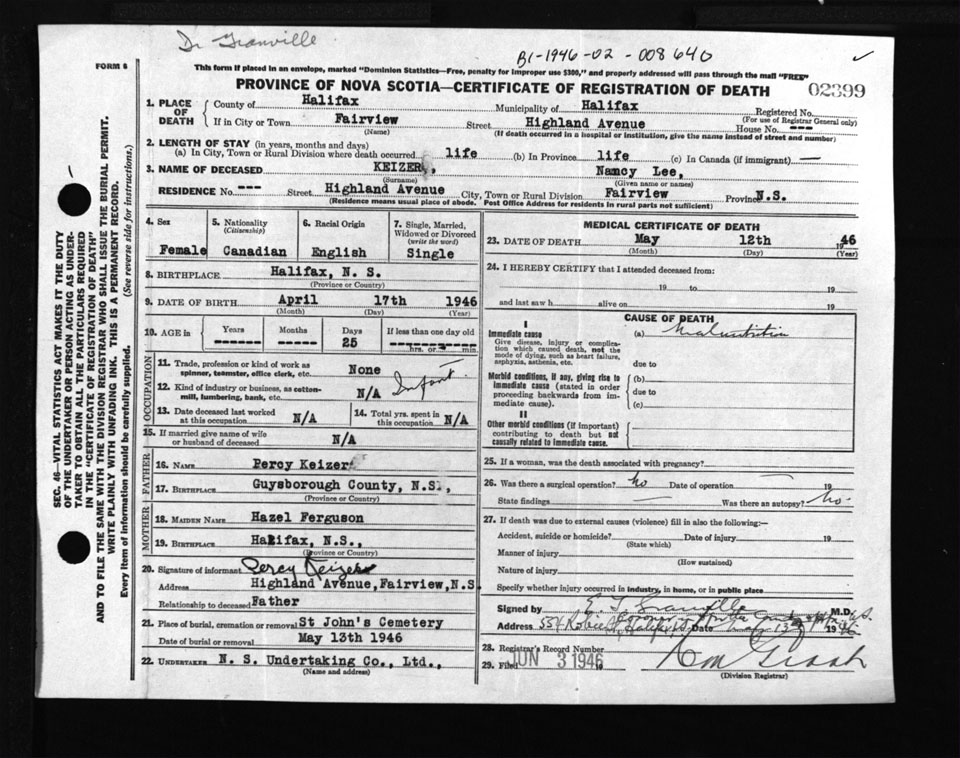 Dr Granville
B1-1946-02-008640
FORM 6
This form if placed in an envelope, marked "Dominion Statistics—Free, penalty for improper use $300," and properly addressed will pass through the mail "FREE"
PROVINCE OF NOVA SCOTIA—CERTIFICATE OF REGISTRATION OF DEATH
02399
1. PLACE OF DEATH
County of Halifax Municipality of Halifax Registered No.
(For use of Registrar General only)
If in City or Town Fairview Street Highland Avenue House No. ---
(Name) (If death occurred in a hospital or institution, give the name instead of street and number)
2. LENGTH OF STAY (in years, months and days)
(a) In City, Town or Rural Division where death occurred life (b) In Province life (c) In Canada (if immigrant) —
3. NAME OF DECEASED KEIZER, Nancy Lee,
(Surname) (Given name or names)
RESIDENCE No. --- Street Highland Avenue City, Town or Rural Division Fairview Province N.S.
(Residence means usual place of abode. Post Office Address for residents in rural parts not sufficient)
4. Sex Female
5. Nationality (Citizenship) Canadian
6. Racial Origin English
7. Single, Married, Widowed or Divorced (write the word) Single
8. BIRTHPLACE Halifax, N. S.
(Province or Country)
9. DATE OF BIRTH April 17th 1946
(Month) (Day) (Year)
10. AGE in Years Months Days If less than one day old
------- ------- 25 hrs. or min.
OCCUPATION
11. Trade, profession or kind of work as spinner, teamster, office clerk, etc. None
12. Kind of industry or business, as cotton-mill, lumbering, bank, etc. N/A Infant
13. Date deceased last worked at this occupation N/A
14. Total yrs. spent in this occupation N/A
15. If married give name of wife or husband of deceased N/A
FATHER
16. NAME Percy Keizer
17. BIRTHPLACE Guysborough County, N.S.,
(Province or Country)
MOTHER
18. MAIDEN NAME Hazel Ferguson
19. BIRTHPLACE Halifax, N.S.,
(Province or Country)
20. Signature of informant Percy Keizer
Address Highland Avenue, Fairview, N.S
Relationship to deceased Father
21. Place of burial, cremation or removal St John's Cemetery
Date of burial or removal May 13th 1946
22. UNDERTAKER N. S. Undertaking Co., Ltd.,
(Name and address)
MEDICAL CERTIFICATE OF DEATH
23. DATE OF DEATH May 12th 1946
(Month) (Day) (Year)
24. I HEREBY CERTIFY that I attended deceased from:
19 to 19
and last saw h alive on 19
CAUSE OF DEATH
I
Immediate cause (a) Malnutrition
Give disease, injury or complication which caused death, not the mode of dying, such as heart failure, asphyxia, asthenia, etc.
due to
Morbid conditions, if any, giving rise to immediate cause (stated in order proceeding backwards from immediate cause).
(b)
due to
(c)
II
Other morbid conditions (if important) contributing to death but not causally related to immediate cause.
25. If a woman, was the death associated with pregnancy?
26. Was there a surgical operation? No Date of operation 19
State findings — Was there an autopsy? No
27. If death was due to external causes (violence) fill in also the following:—
Accident, suicide or homicide? Date of injury 19
(State which)
Manner of injury
(How sustained)
Nature of injury
Specify whether injury occurred in industry, in home, or in public place
Signed by E. T. Granville M.D.
Address 554 Robie St Halifax Date May 13 1946
28. Registrar's Record Number
29. Filed JUN 3 1946
(Division Registrar)
SEC. 46—VITAL STATISTICS ACT MAKES IT THE DUTY
OF THE UNDERTAKER OR PERSON ACTING AS UNDER-
TAKER TO OBTAIN ALL THE PARTICULARS REQUIRED
IN THE "CERTIFICATE OF REGISTRATION OF DEATH"
AND TO FILE THE SAME WITH THE DIVISION REGISTRAR WHO SHALL ISSUE THE BURIAL PERMIT.
WRITE PLAINLY WITH UNFADING INK. THIS IS A PERMANENT RECORD.
Every item of information should be carefully supplied. (See reverse side for instructions.)